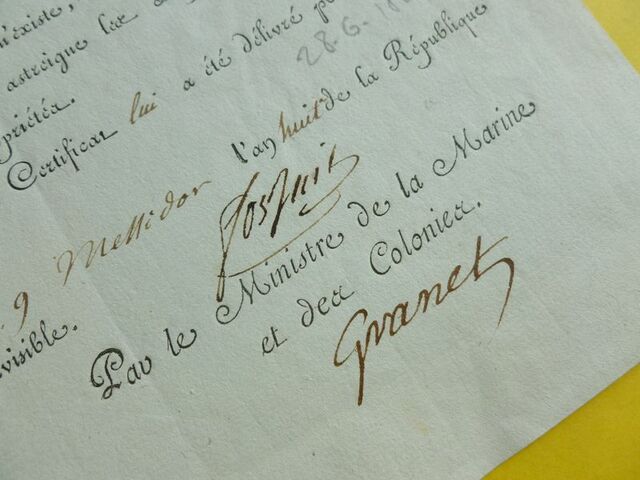 n'existe,
astreigne les
priétés.
Certificat lui a été délivré
28.6.
9 Messidor l'an huit de la République
visible.
Forfait
Par le Ministre de la Marine
et des Colonies.
Granet